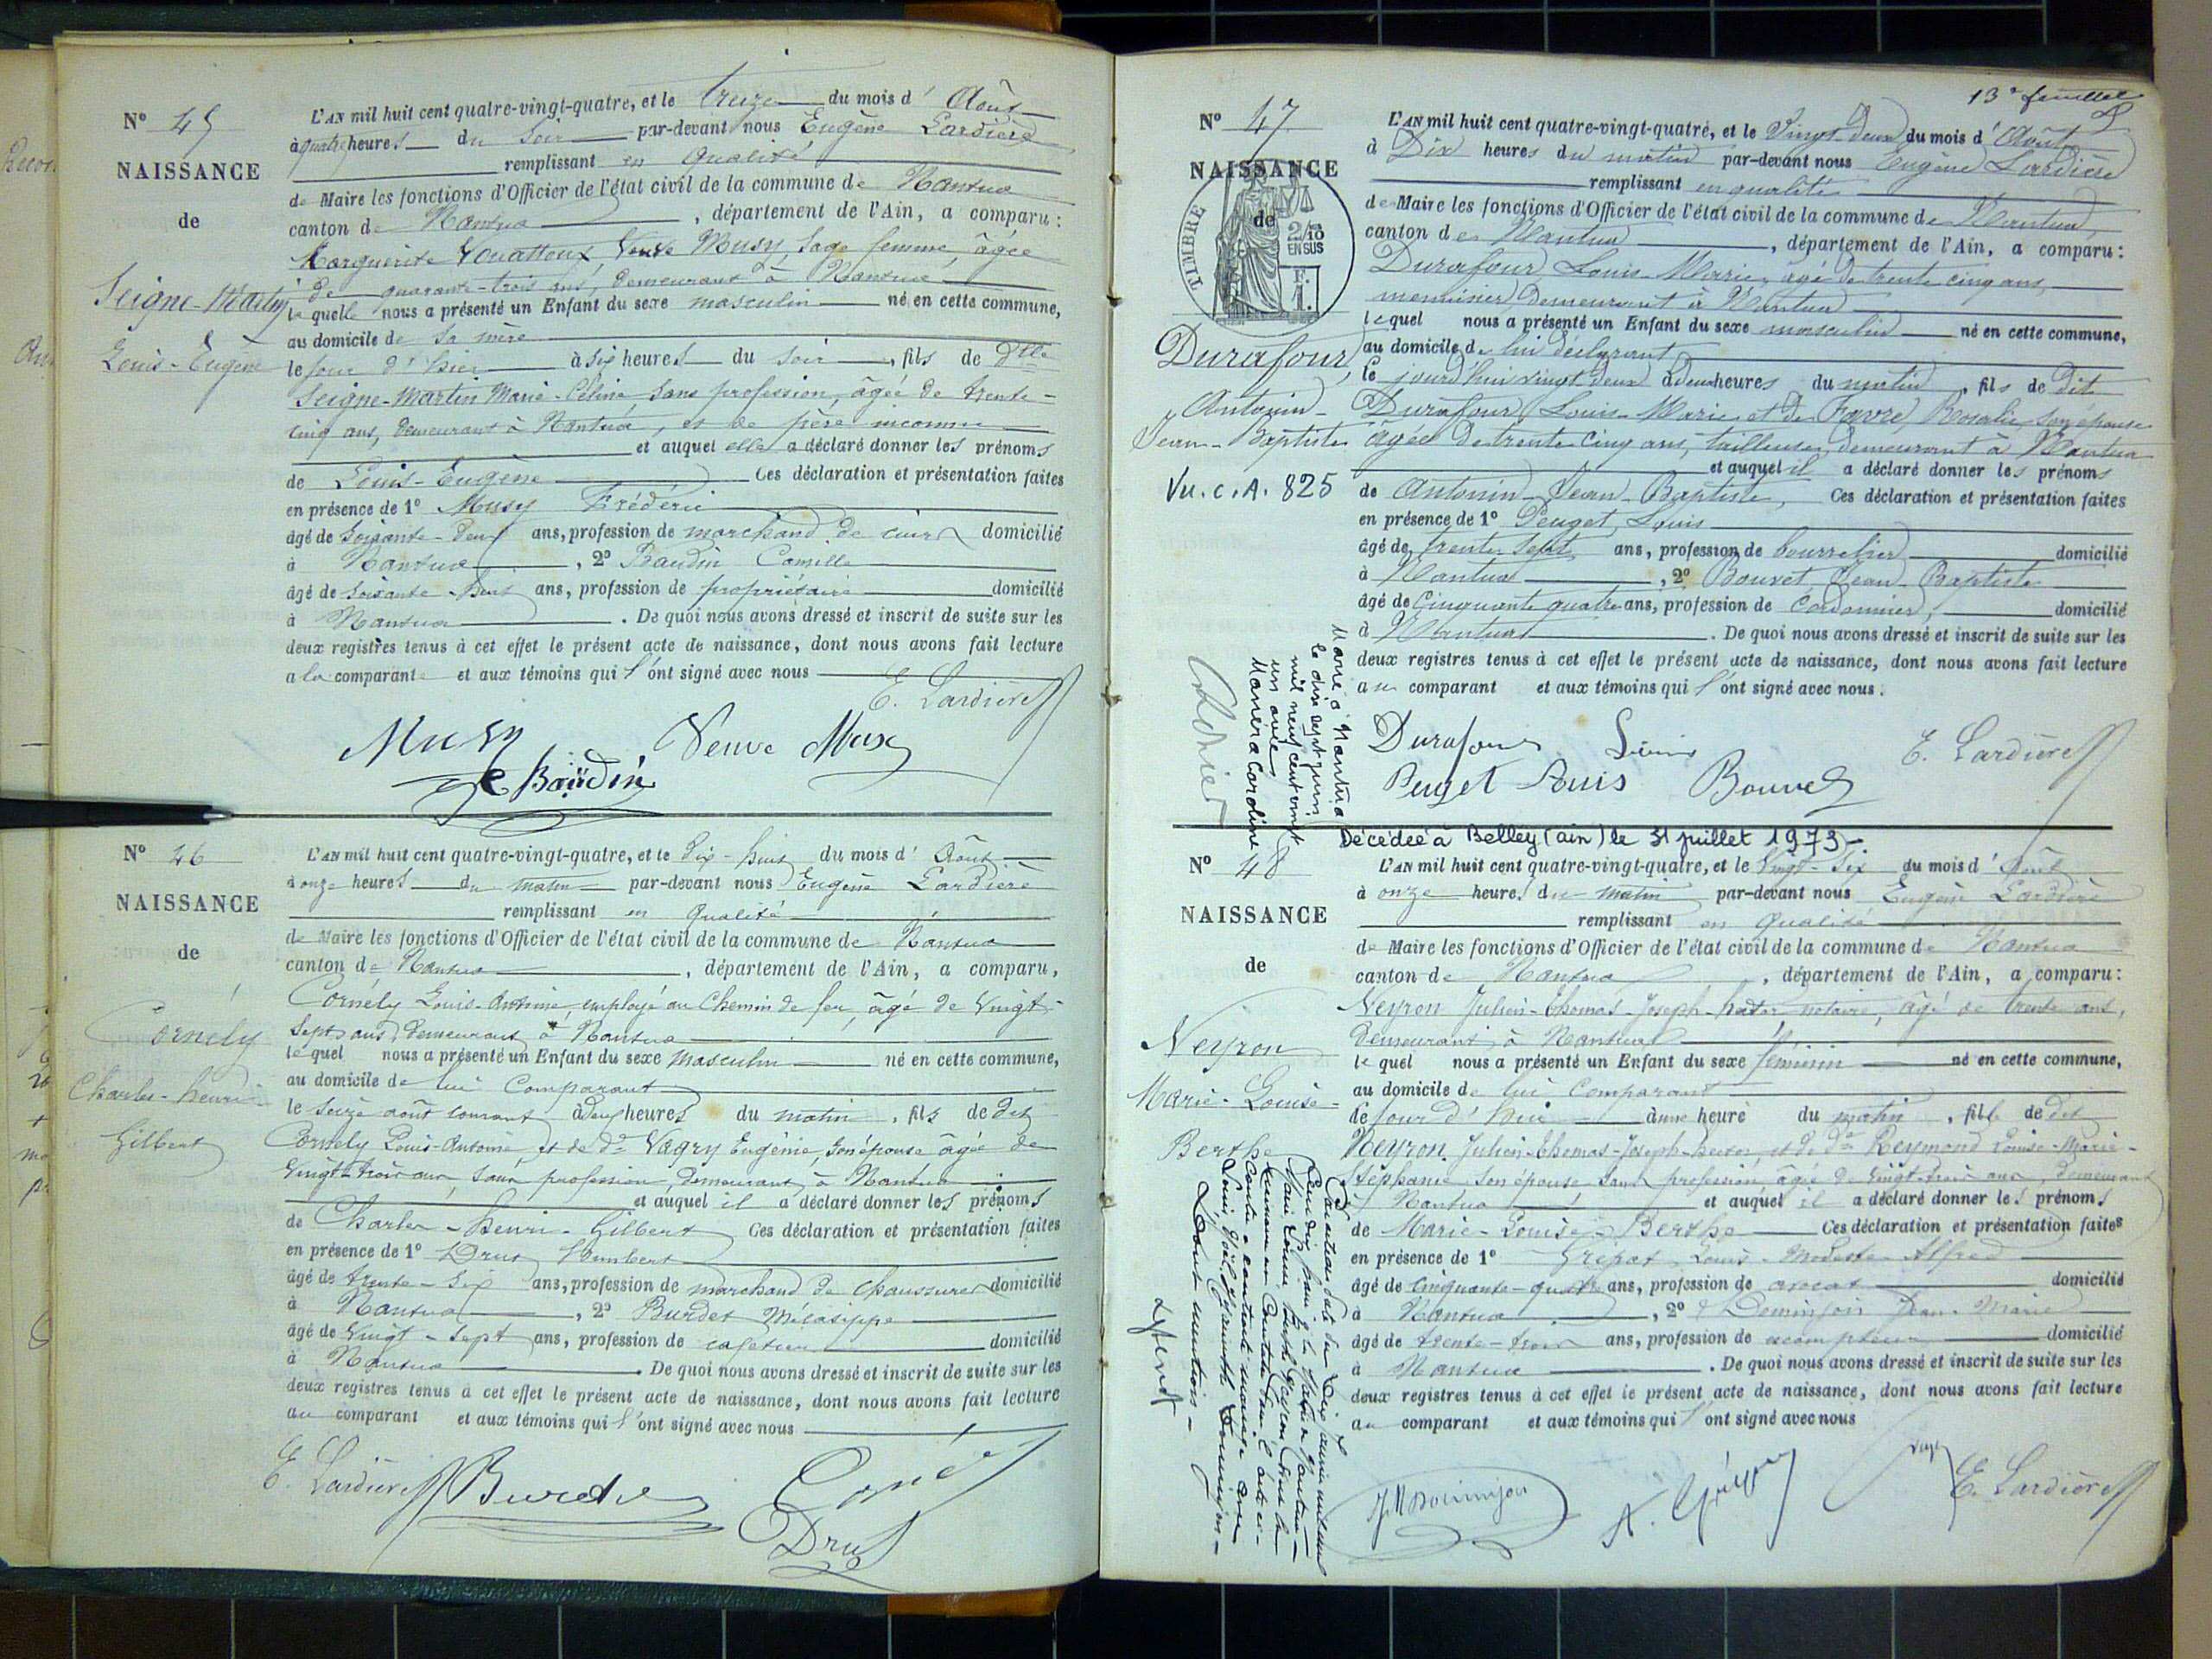 N° 45
NAISSANCE
de
Seigne-Martin
Louis-Eugène
L'AN mil huit cent quatre-vingt-quatre, et le treize du mois d'Août
à quatre heures du soir par-devant nous Eugène Lardière
remplissant en qualité
de Maire les fonctions d'Officier de l'état civil de la commune de Nantua
canton de Nantua, département de l'Ain, a comparu:
Marguerite Vouattoux Veuve Musy, sage femme, âgée
de quarante-trois ans, demeurant à Nantua
laquelle nous a présenté un Enfant du sexe masculin né en cette commune,
au domicile de sa mère
le jour d'hier à six heures du soir, fils de Dlle
Seigne-Martin Marie-Céline sans profession, âgée de trente-
cinq ans, demeurant à Nantua, et de père inconnu
et auquel elle a déclaré donner les prénoms
de Louis-Eugène Ces déclaration et présentation faites
en présence de 1° Musy Frédéric
âgé de soixante-deux ans, profession de marchand de cuirs domicilié
à Nantua, 2° Baudin Camille
âgé de soixante-huit ans, profession de propriétaire domicilié
à Nantua. De quoi nous avons dressé et inscrit de suite sur les
deux registres tenus à cet effet le présent acte de naissance, dont nous avons fait lecture
a la comparante et aux témoins qui l'ont signé avec nous
E. Lardière
Musy Veuve Musy
C Baudin
N° 46
NAISSANCE
de
Cornély
Charles-henri-
Gilbert
L'AN mil huit cent quatre-vingt-quatre, et le dix-huit du mois d'Août
à onze heures du matin par-devant nous Eugène Lardière
remplissant en qualité
de Maire les fonctions d'Officier de l'état civil de la commune de Nantua
canton de Nantua, département de l'Ain, a comparu,
Cornély Louis-Antoine, employé au Chemin de fer, âgé de vingt-
sept ans, demeurant à Nantua
lequel nous a présenté un Enfant du sexe masculin né en cette commune,
au domicile de lui Comparant
le seize août courant à deux heures du matin, fils de dit
Cornély Louis-Antoine, et de de Vagry Eugénie, son épouse âgée de
vingt-trois ans, sans profession, demeurant à Nantua
et auquel il a déclaré donner les prénoms
de Charles-henri-Gilbert Ces déclaration et présentation faites
en présence de 1° Drut Humbert
âgé de trente-six ans, profession de marchand de chaussures domicilié
à Nantua, 2° Burdet
âgé de vingt-sept ans, profession de cafetier domicilié
à Nantua. De quoi nous avons dressé et inscrit de suite sur les
deux registres tenus à cet effet le présent acte de naissance, dont nous avons fait lecture
au comparant et aux témoins qui l'ont signé avec nous
E. Lardière Burdet
Drut
13e feuillet
N° 47
NAISSANCE
de
TIMBRE
2/10
EN SUS
Durafour,
Antonin-
Jean-Baptiste
Vu. C.A. 825
L'AN mil huit cent quatre-vingt-quatre, et le vingt deux du mois d'Août
à Dix heures du matin par-devant nous Eugène Lardière
remplissant en qualité
de Maire les fonctions d'Officier de l'état civil de la commune de Nantua,
canton de Nantua, département de l'Ain, a comparu:
Durafour Louis-Marie, âgé de trente cinq ans,
menuisier, demeurant à Nantua
lequel nous a présenté un Enfant du sexe masculin né en cette commune,
au domicile de lui déclarant
le jourd'hui vingt deux à deux heures du matin, fils de dit
Durafour Louis-Marie et de Favre Rosalie, son épouse
âgée de trente cinq ans, tailleuse, demeurant à Nantua
et auquel il a déclaré donner les prénoms
de Antonin-Jean-Baptiste, Ces déclaration et présentation faites
en présence de 1° Peuget Louis
âgé de trente sept ans, profession de bourrelier domicilié
à Nantua, 2° Bouvet Jean-Baptiste
âgé de cinquante quatre ans, profession de cordonnier, domicilié
à Nantua. De quoi nous avons dressé et inscrit de suite sur les
deux registres tenus à cet effet le présent acte de naissance, dont nous avons fait lecture
au comparant et aux témoins qui l'ont signé avec nous.
Marié à Nantua
le dix sept juin
mil neuf cent vingt
un avec
Manera Caroline
Durafour Louis E. Lardière
Puget Louis Bouvet
Décédée à Belley (ain) le 31 juillet 1973-
N° 48
NAISSANCE
de
Neyron
Marie-Louise-
Berthe
L'AN mil huit cent quatre-vingt-quatre, et le vingt-six du mois d'Août
à onze heures du matin par-devant nous Eugène Lardière
remplissant en qualité
de Maire les fonctions d'Officier de l'état civil de la commune de Nantua
canton de Nantua, département de l'Ain, a comparu:
Neyron Julien-Thomas-Joseph-hector, notaire, âgé de trente ans,
demeurant à Nantua
lequel nous a présenté un Enfant du sexe féminin né en cette commune,
au domicile de lui Comparant
le jour d'hui à une heure du matin, fille de dit
Neyron Julien-Thomas-Joseph-hector, et de de Reymond Louise-Marie-
Stéphanie son épouse sans profession, âgée de vingt-trois ans, demeurant
à Nantua et auquel il a déclaré donner les prénoms
de Marie-Louise-Berthe Ces déclaration et présentation faites
en présence de 1° Louis-Modeste-Alfred
âgé de cinquante-quatre ans, profession de avocat domicilié
à Nantua, 2° Dominjon Jean-Marie
âgé de trente-trois ans, profession de escompteur domicilié
à Nantua. De quoi nous avons dressé et inscrit de suite sur les
deux registres tenus à cet effet le présent acte de naissance, dont nous avons fait lecture
au comparant et aux témoins qui l'ont signé avec nous
Dont mention-
JM Dominjon E. Lardière